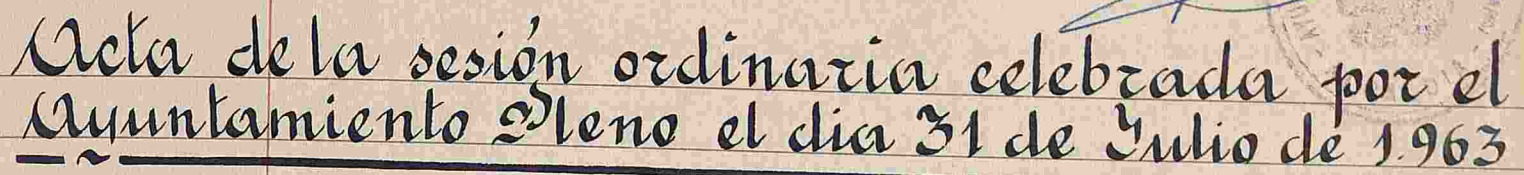 Acta de la sesión ordinaria celebrada por el
Ayuntamiento Pleno el dia 31 de Julio de 1.963